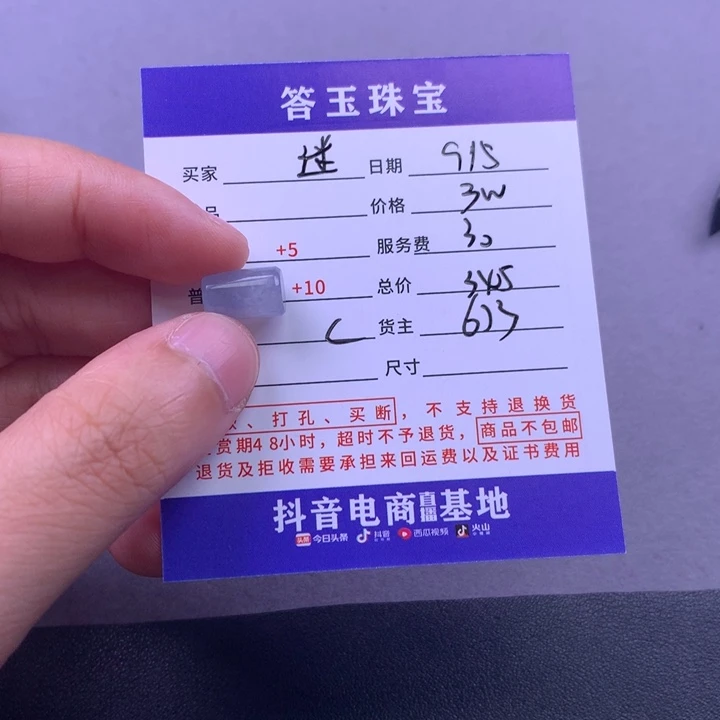 答玉珠宝
买家 迷 日期 915
品 价格 3W
+5 服务费 30
普 +10 总价 3405
C 货主 673
尺寸
、打孔、买断，不支持退换货
赏期48小时，超时不予退货，商品不包邮
退货及拒收需要承担来回运费以及证书费用
抖音电商直播基地
头条 今日头条 抖音 西瓜视频 火山